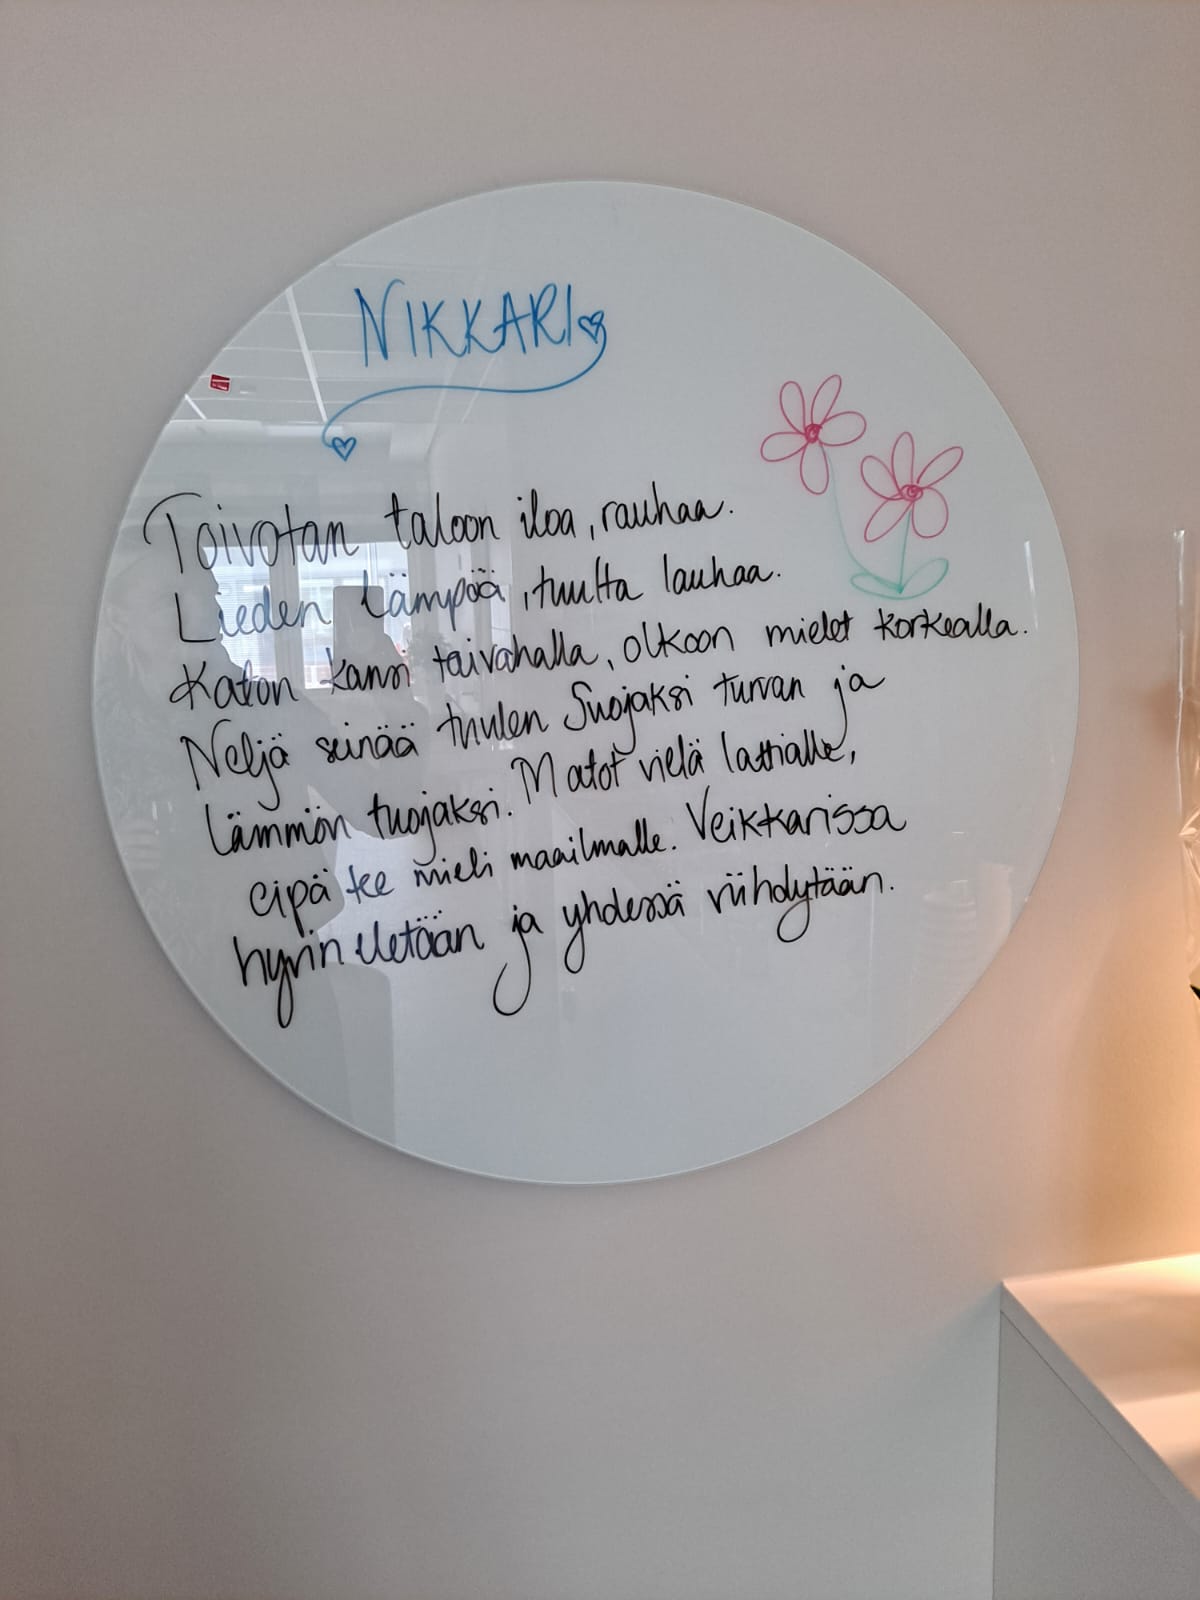 NIKKARI
Toivotan taloon iloa, rauhaa.
Lieden lämpöä, tuulta lauhaa.
Katon kansi taivahalla, olkoon mielet korkealla.
Neljä seinää tuulen Suojaksi turvan ja
lämmön tuojaksi. Matot vielä lattialle,
eipä tee mieli maailmalle. Veikkarissa
hyrin eletään ja yhdessä viihdytään.